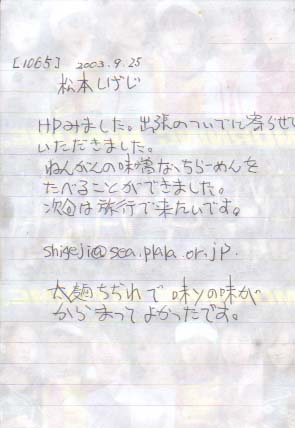 [1065] 2003.9.25
松本しげじ
HPみました。出張のついでに寄らせて
いただきました。
ねんがんの味噌なっちらーめんを
たべることができました。
次回は旅行で来たいです。
shigeji@sea.plala.or.jp.
太麺ちぢれで 味yの味が
からまってよかったです。